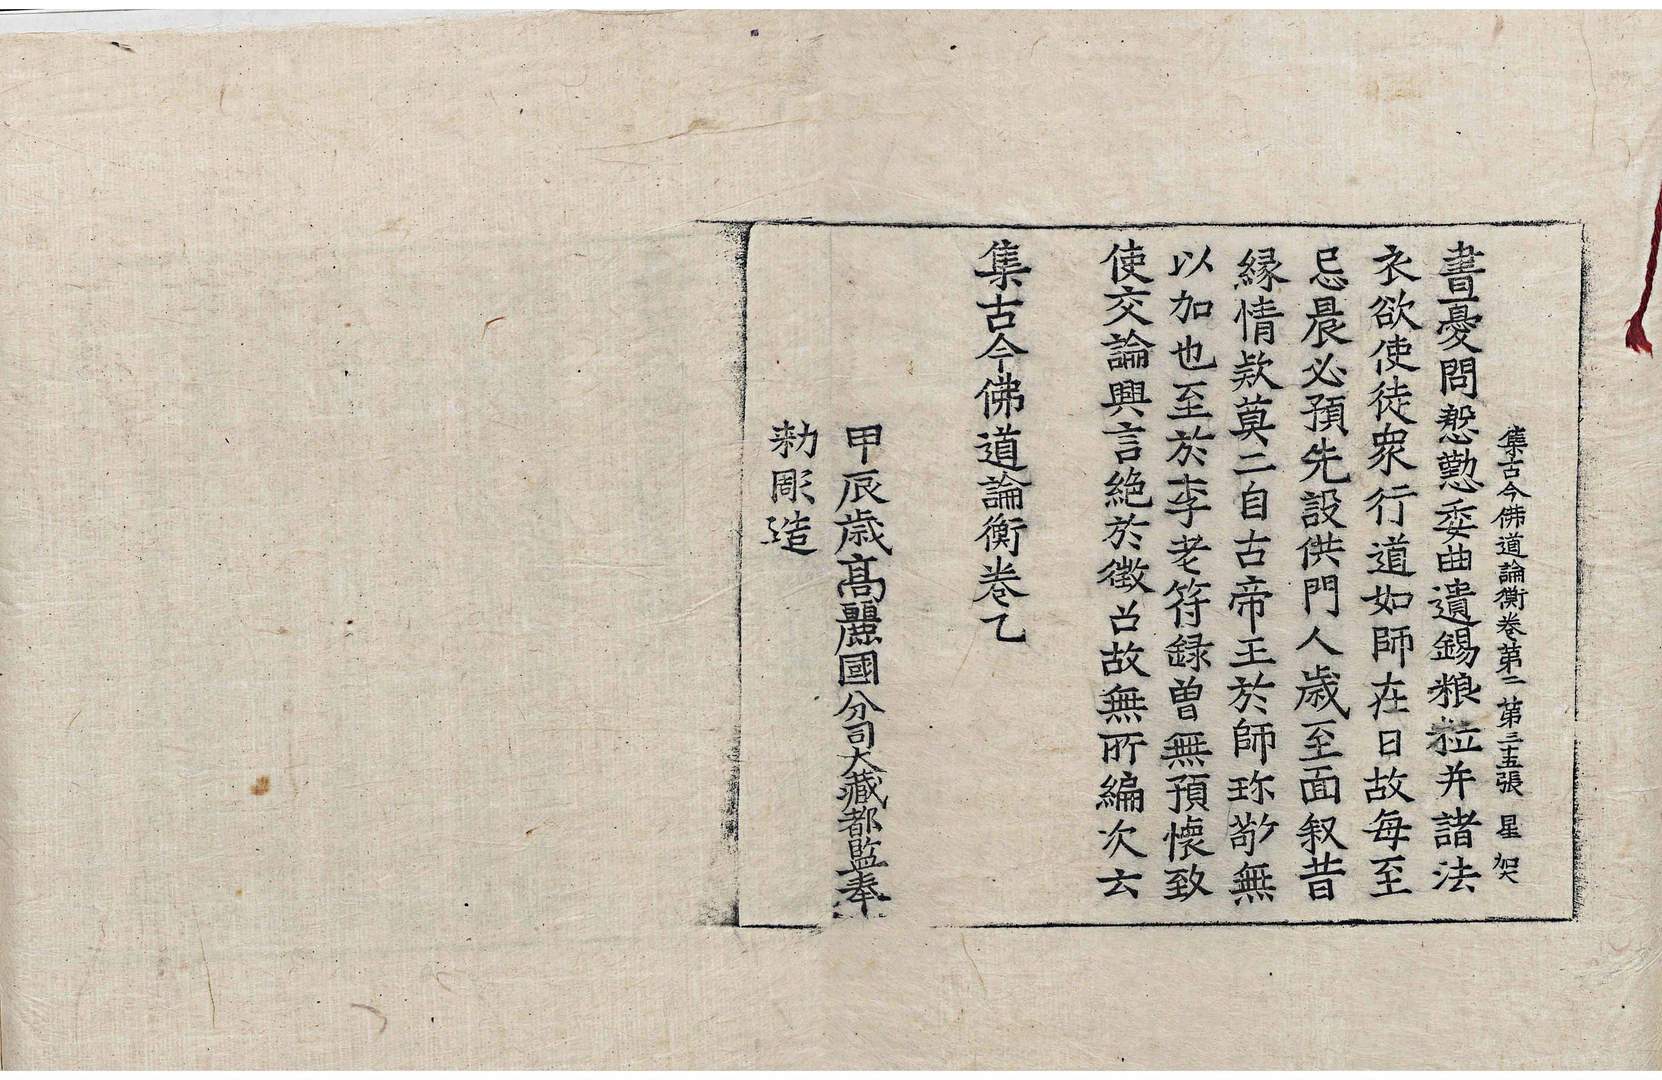 集古今佛道論衡卷第二 第三十五張 星 架
書憂問慇懃委曲遺錫粮粒并諸法
衣欲使徒衆行道如師在日故每至
忌晨必預先設供門人歳至面叙昔
縁情欵莫二自古帝王於師珎敬無
以加也至於李老符録曽無預懐致
使交論興言絶於徵召故無所編次云
集古今佛道論衡卷乙
甲辰歳髙麗國分司大藏都監奉
勑彫造